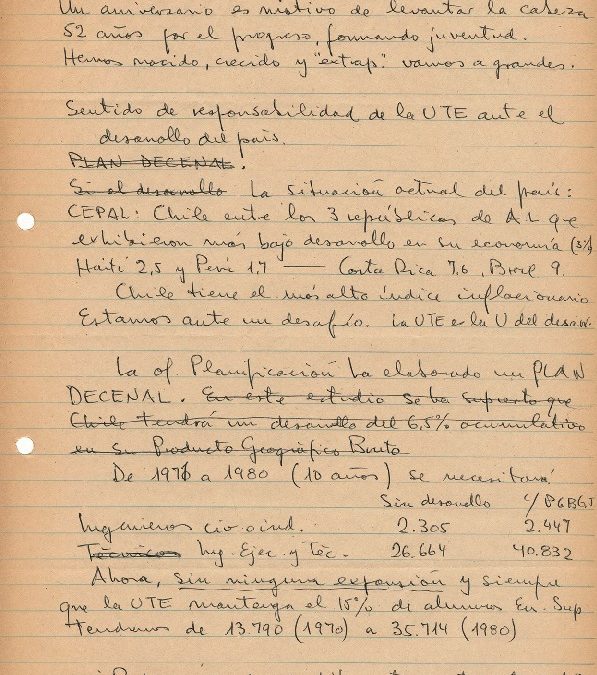 Un aniversario es motivo de levantar la cabeza
52 años por el progreso, formando juventud.
Hemos nacido, crecido y "extrap." vamos a grandes.
Sentido de responsabilidad de la UTE ante el
desarrollo del país.
PLAN DECENAL.
Si al desarrollo La situación actual del país:
CEPAL: Chile entre las 3 repúblicas de A.L que
exhibieron más bajo desarrollo en su economía (3%)
Haití 2,5 y Perú 1,7 — Costa Rica 7,6, Brasil 9.
Chile tiene el más alto índice inflacionario
Estamos ante un desafío. La UTE es la U del desarr.
La of. Planificación ha elaborado un PLAN
DECENAL. En este estudio se ha supuesto que
Chile tendrá un desarrollo del 6,5% acumulativo
en su Producto Geográfico Bruto
De 1971 a 1980 (10 años) se necesitará
Sin desarrollo c/PGBGJ
Ingenieros civ. o ind. 2.305 2.447
Técnicos Ing. Ejec. y Téc. 26.664 40.832
Ahora, sin ninguna expansión y siempre
que la UTE mantenga el 15% de alumnos En. Sup
tendremos de 13.790 (1970) a 35.714 (1980)